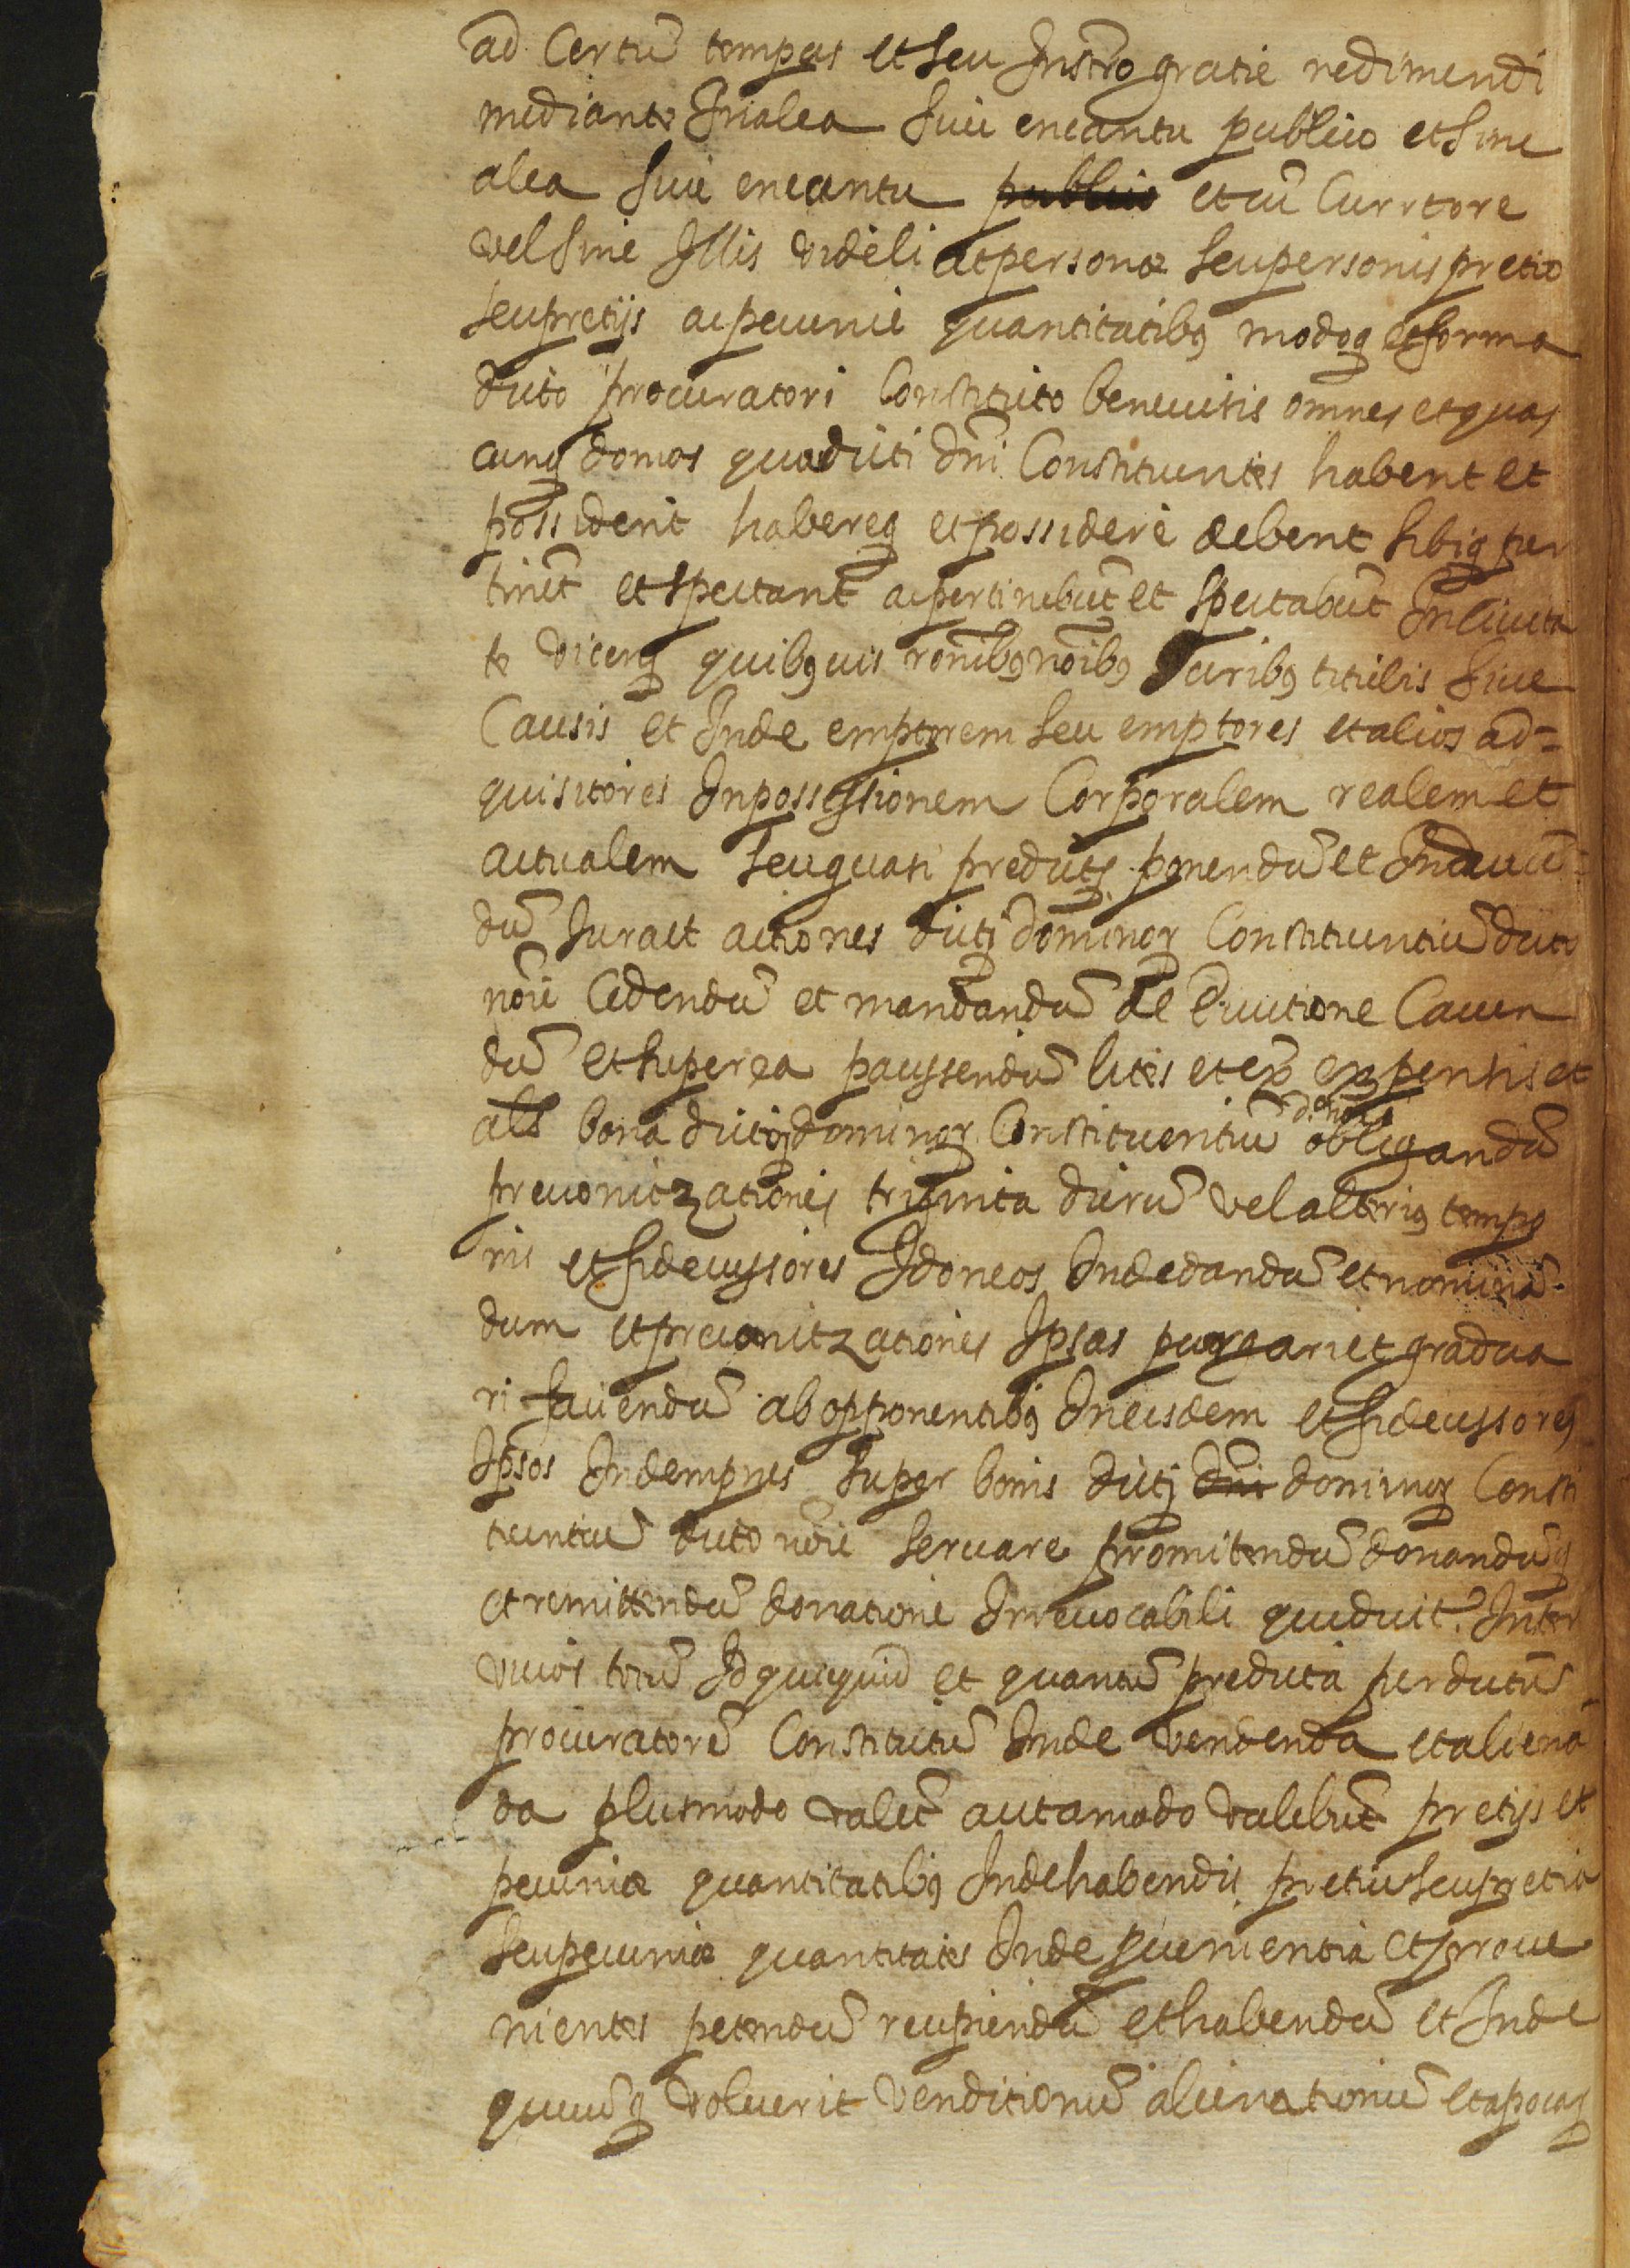 ad Certũ tempus et seu Instrõ gratie redimendi
mediante In alea sive encantu publico et sine
alea sive encantu publico et cũ Curritore
vel sine Illis videli acpersonæ seupersonis pretio
seupretijs ac pecunie quantitatibꝰ modoqꝫ et forma
dicto procuratori Constituto benevisis omnes et quas
cunqꝫ domos quas dicti dñi Constituentes habent et
possident habereqꝫ et possidere debent sibiqꝫ per
tinẽt et spectant ac pertinebũt et spectabũt In Civita
te quibꝰvis rõnibꝰ nõibꝰ Juribꝰ titulis sive
Causis et Inde emptorem seu emptores et alios ad=
quisitores Inpossessionem Corporalem realem et
actualem seuquasi predictoꝝ ponendũ et Inducẽ=
dũ Jura et actiones dictoꝝ dominoꝝ Constituentiũ dicto
nõie Cedendũ et mandandũ de Evictione Caven
dũ et super ea paciscendũ litis et expensis et
als bona dictoꝝ dominoꝝ Constituentiũ d. nõie obligandũ
preconitzationes triginta dierũ vel alteriꝰ tempo
ris et fideiussores Idoneos Inde dandũ et nominã
dum et preconitzationes Ipsas purgari et gradua
ri faciendũ ab opponentibꝰ In eisdem et fideiussores
Ipsos Indempnes super bonis dictoꝝ dñi dominoꝝ Consti
tuentiũ dicto nõie servare promitendũ donandũqꝫ
et remittendũ donatione Irrevocabili que dicit͛ Inter
vivos totũ Id quicquid et quantũ predicta per dictũ
procuratorẽ Constitutũ Inde vendenda et alienã
da plus modo valẽt aut amodo valebũt pretijs et
pecuniæ quantitatibꝰ Inde habendis pretiũ seu pretia
seu pecuniæ quantitates Inde pvenientia et prove
nientes petendũ recipiendũ et habendũ et Inde
quecũqꝫ voluerit venditionũ alienationũ et apocaꝝ